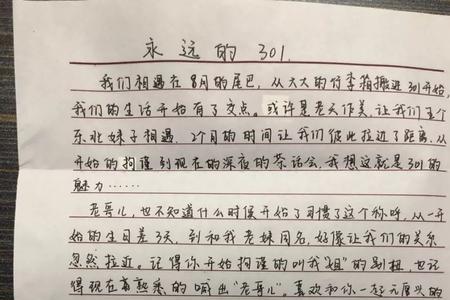 永远的301.
我们相遇在8月的尾巴，从大大的行李箱搬进301开始，
我们的生活开始有了交点。或许是老天作美，让我们五个
东北妹子相遇。2个月的时间让我们彼此拉近了距离，从
开始的拘谨到现在的深夜的茶话会，我想这就是301的
魅力……
老哥儿，也不知道什么时候开始了习惯了这个称呼，从一开
始的生日差3天，到和我老妹同名，好像让我们的关系
忽然拉近。记得你开始拘谨的叫我"姐"的别扭，也记
得现在着熟悉的喊出"老哥儿"。喜欢和你一起元